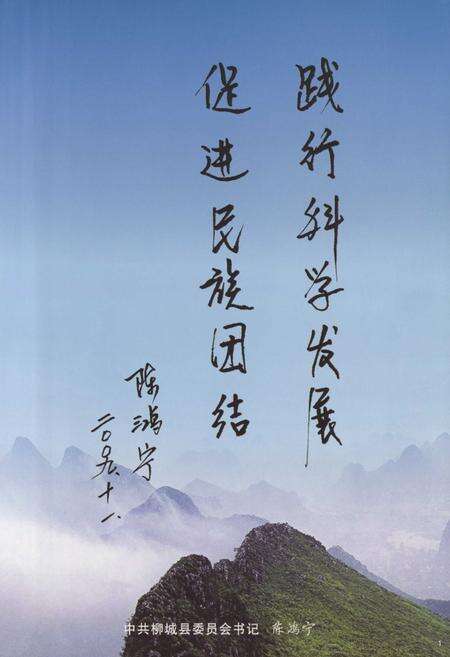 践行科学发展
促进民族团结
陈鸿宁
二〇〇九、十一、
中共柳城县委员会书记 陈鸿宁
1